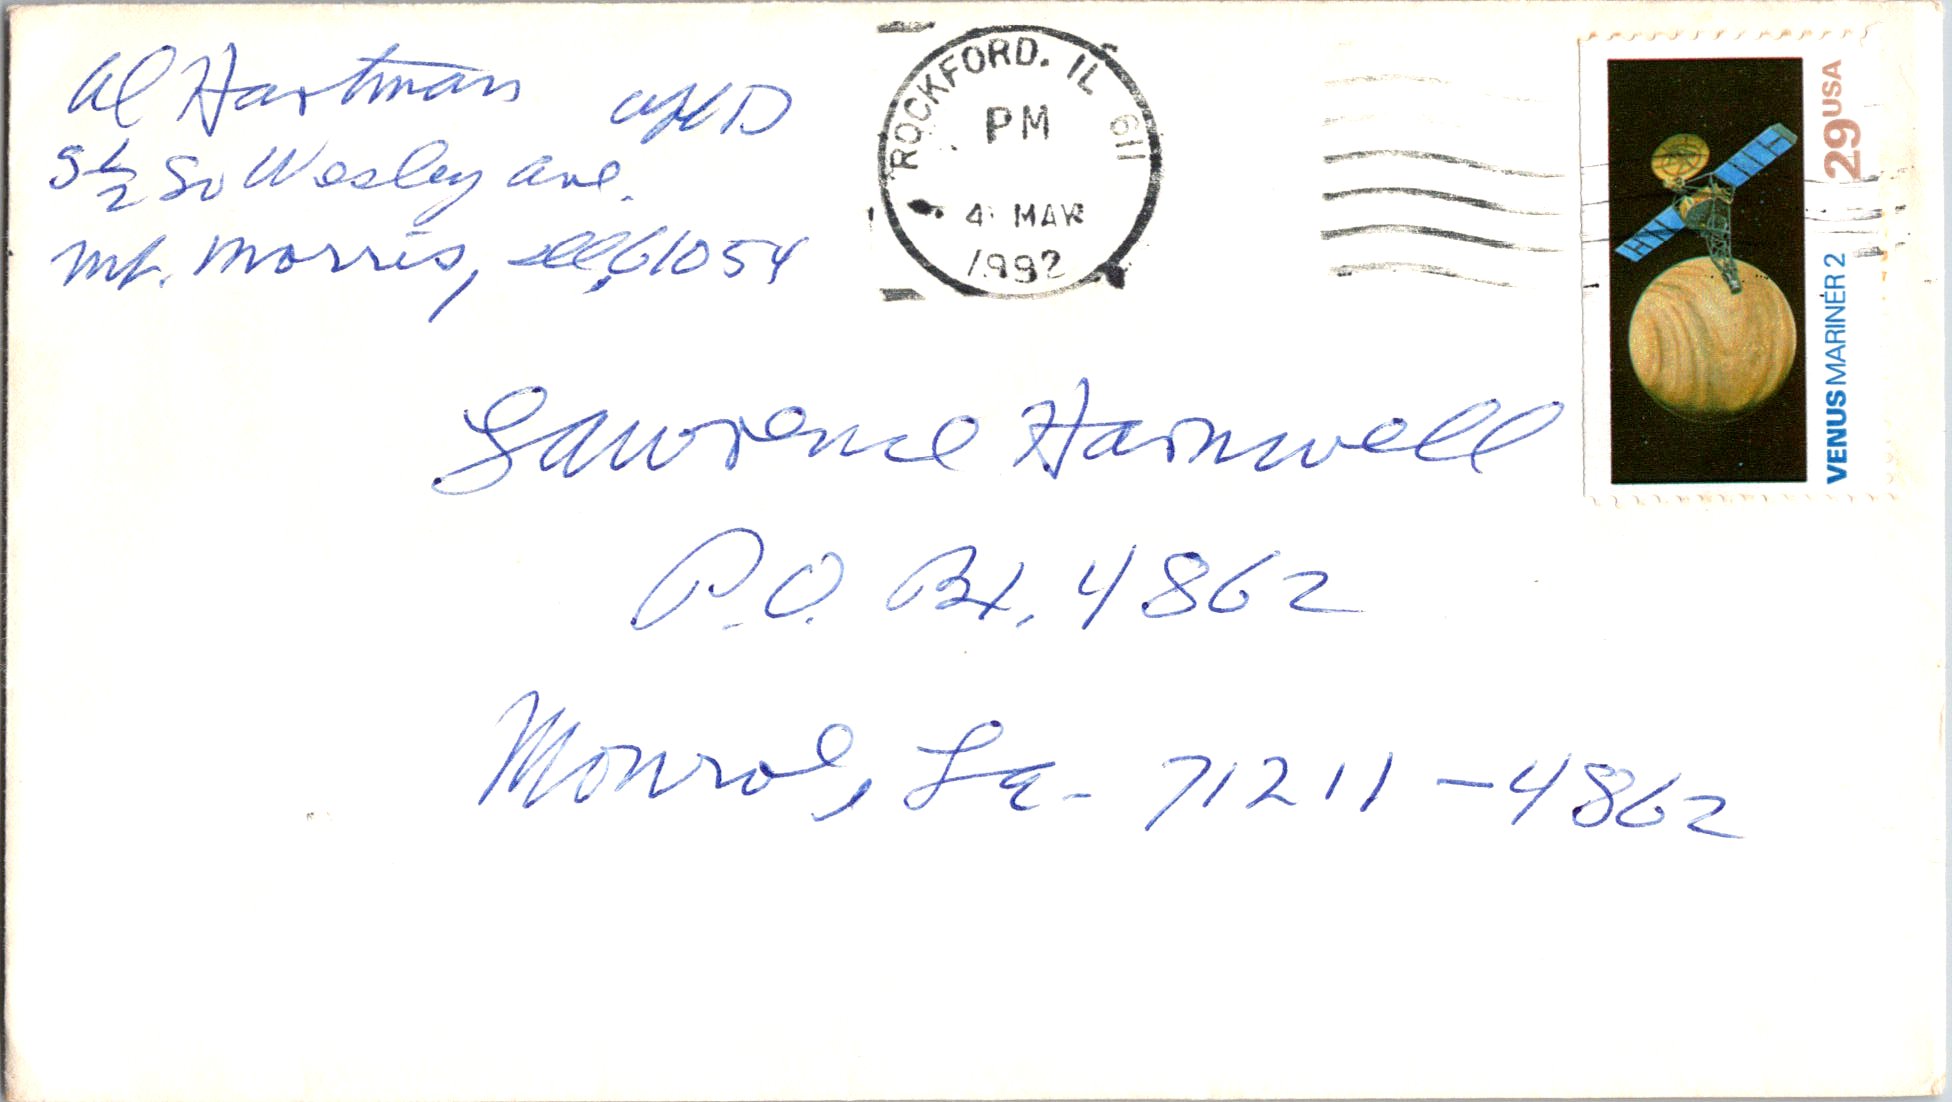 Al Hartman
5 1/2 So Wesley Ave.
Mt. Morris, Ill, 61054
ROCKFORD. IL 611
PM
4 MAR
1992
29USA
VENUS MARINER 2
Lawrence Harnwell
P.O. Bx. 4862
Monroe, La- 71211-4862